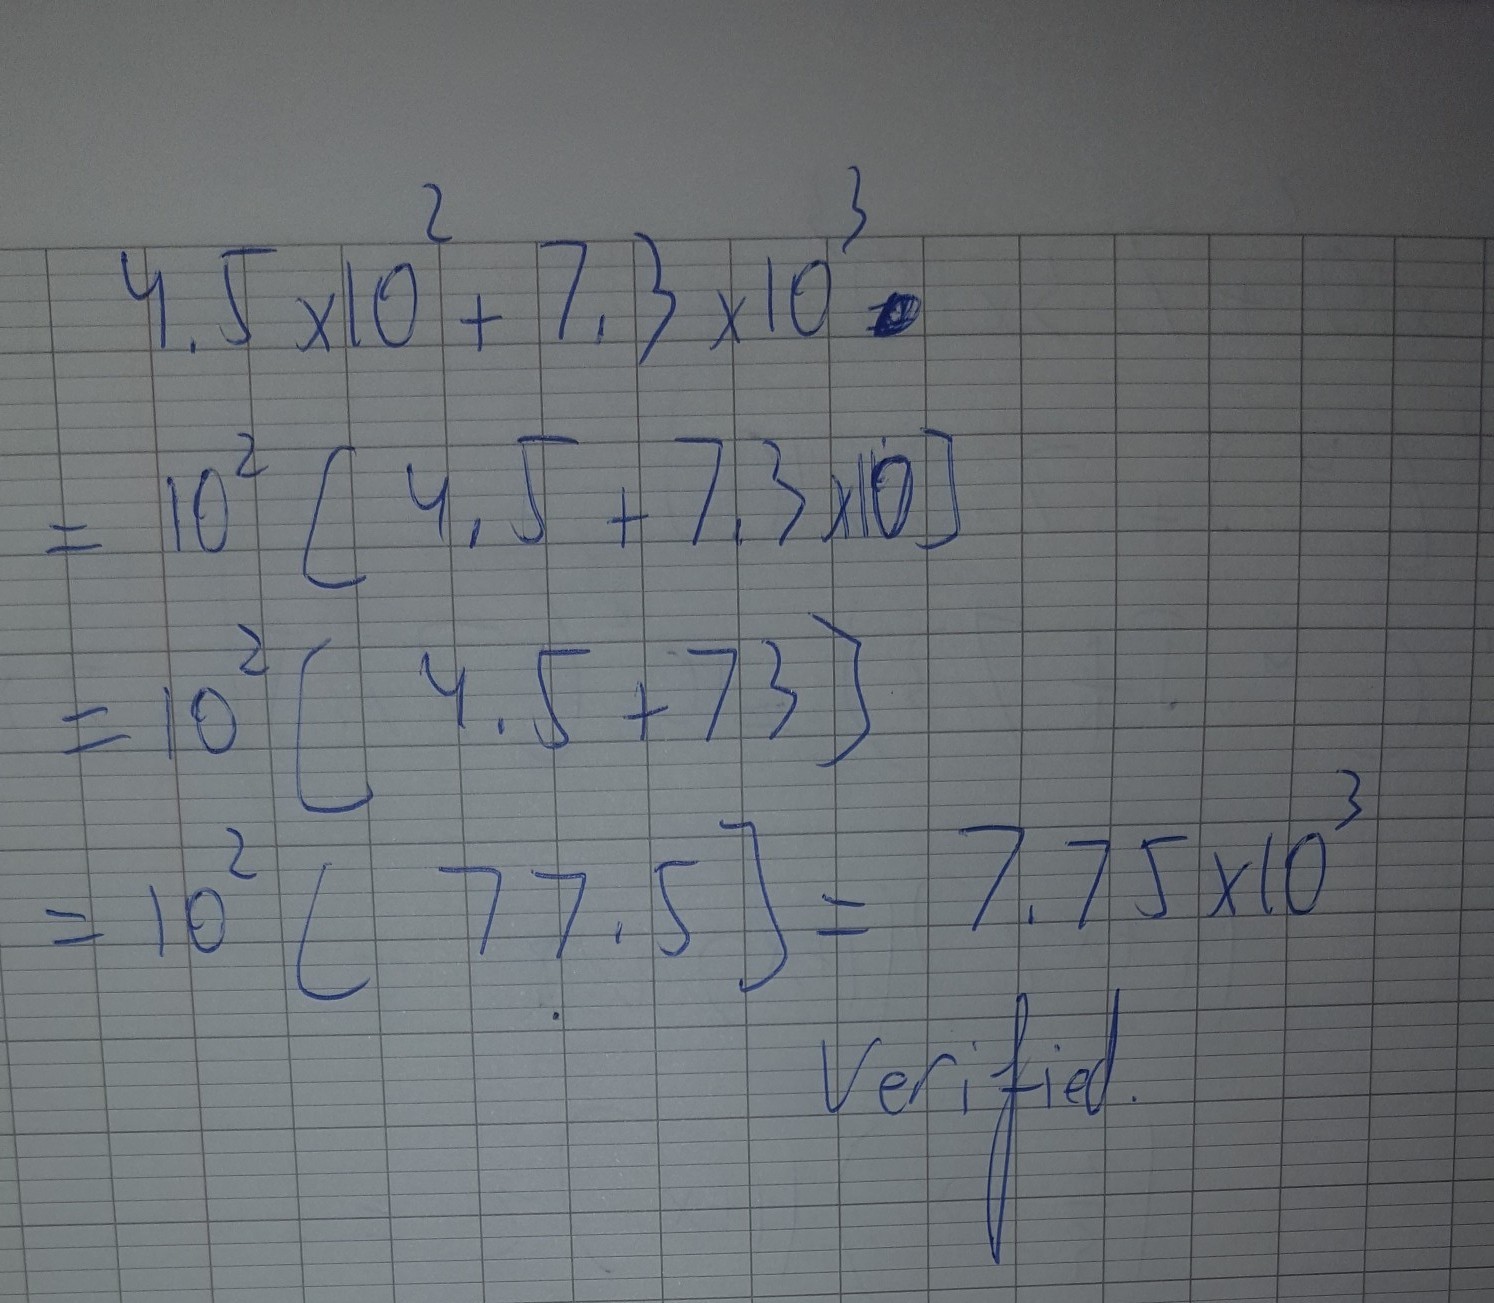 4.5 x 10² + 7.3 x 10³
= 10² [ 4.5 + 7.3 x 10 ]
= 10² [ 4.5 + 73 ]
= 10² [ 77.5 ] = 7.75 x 10³
Verified.